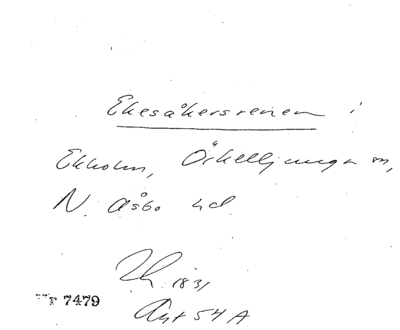 Ekesåkersrenen i
Ekholm, Örkelljunga sn,
N. Åsbo hd.
1831
7479
Akt 54 A